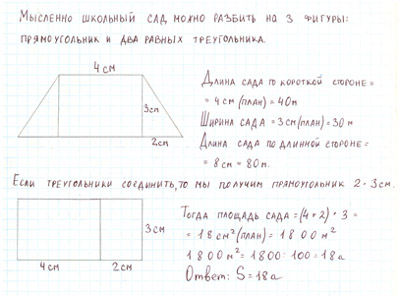 Мысленно школьный сад можно разбить на 3 фигуры:
прямоугольник и два равных треугольника.
4см
3см
2см
Длина сада по короткой стороне =
= 4см (план) = 40м
Ширина сада = 3см (план) = 30 м
Длина сада по длинной стороне =
= 8см = 80м.
Если треугольники соединить, то мы получим прямоугольник 2·3см.
3см
4см 2см
Тогда площадь сада = (4+2)·3 =
= 18см² (план) = 1800м²
1800м² = 1800:100 = 18а
Ответ: S = 18а